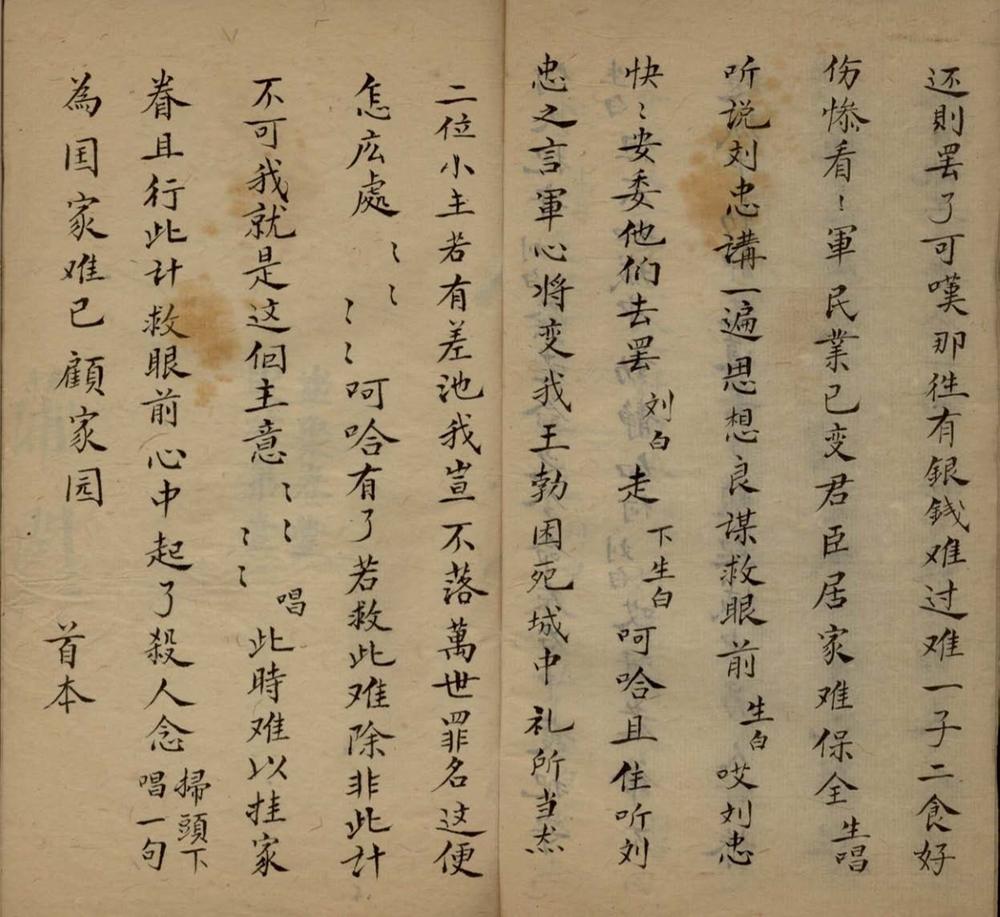 还則罢了可嘆那徃有銀銭难过难一子二食好
伤惨看〻軍民業已变君臣居家难保全生唱
听说刘忠講一遍思想良谋救眼前生白哎刘忠
快〻安委他们去罢刘白走下生白呵哈且住听刘
忠之言軍心将变我王勃困死城中礼所当然
二位小主若有差池我岂不落萬世罪名这便
怎庅處〻〻〻〻呵哈有了若救此难除非此计
不可我就是这個主意〻〻〻〻唱此時难以挂家
眷且行此计救眼前心中起了殺人念掃頭下唱一句
為国家难已顧家园
首本